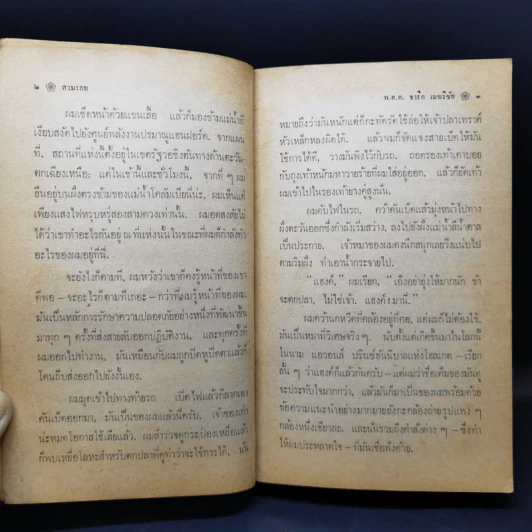 ๒ ❀ สวมรอย
ผมเช็ดหน้าด้วยแขนเสื้อ แล้วก็มองข้ามแม่น้ำที่
เงียบสงัดไปยังศูนย์พลังงานปรมาณูแฮนฟอร์ด. จากแผน
ที่, สถานที่แห่งนี้ตั้งอยู่ในเขตรัฐวอชิงตันทางด้านตะวัน
ตกเฉียงเหนือ; แต่ในเช้านี้และชั่วโมงนี้, จากที่ ๆ ผม
ยืนอยู่บนฝั่งตรงข้ามของแม่น้ำโคลัมเบียนี้น่ะ, ผมเห็นแต่
เพียงแสงไฟหรุบหรู่สองสามดวงเท่านั้น. ผมอดสงสัยไม่
ได้ว่าเขาทำอะไรกันอยู่ ณ ที่แห่งนั้นในขณะที่ผมกำลังทำ
อะไรของผมอยู่ที่นี่.
จะยังไงก็ตามที, ผมหวังว่าเขาก็คงรู้หน้าที่ของเขา
ดีพอ – จะอะไรก็ตามที่เถอะ – กว่าที่ผมรู้หน้าที่ของผม.
มันเป็นหลักการรักษาความปลอดภัยอย่างหนึ่งที่พัฒนาขึ้น
มาทุก ๆ ครั้งที่ส่งสายลับออกปฏิบัติงาน, และทุกครั้งที่
ผมออกไปทำงาน, มันเหมือนกับผมถูกปิดหูปิดตาแล้วก็
โดนถีบส่งออกไปยังงั้นเอง.
ผมมุดเข้าไปทางท้ายรถ เปิดไฟแล้วก็ลากเอา
คันเบ็ดออกมา, มันเป็นของผมแล้วนี่ครับ. เจ้าของเก่า
น่ะหมดโอกาสใช้เสียแล้ว. ผมสำรวจดูกระป๋องเหยื่อแล้ว
ก็พบเหยื่อโลหะสำหรับตกปลาที่ดูท่าว่าจะใช้การได้, มัน
พ.ต.ต. จารึก เมฆวิชัย ❀ ๓
หมายถึงว่ามันหนักแต่ก็กะทัดรัดใช้ล่อให้เจ้าปลาเทราต์
หัวเหล็กหลงผิดได้. แล้วผมก็จัดแจงสายเบ็ดให้มัน
ใช้การได้ดี, วางมันพิงไว้กับรถ, ถอดรองเท้าเตาบอย
กับถุงเท้าหนักมหาวายร้ายที่ผมใส่อยู่ออก, แล้วก็ยัดเท้า
ผมเข้าไปในรองเท้ายางคู่สูงนั่น.
ผมดับไฟในรถ, คว้าคันเบ็ดแล้วมุ่งหน้าไปทาง
ฝั่งตะวันออกซึ่งกำลังเริ่มสว่าง, ลงไปยังฝั่งแม่น้ำสีน้ำตาล
เป็นประกาย. เจ้าหมาของผมคงนึกสนุกเลยวิ่งแน่บไป
ตามริมฝั่ง ทำเอาน้ำกระจายไป.
“แฮงค์,” ผมเรียก, “เอ็งอย่ายุ่งให้มากนัก ข้า
จะตกปลา, ไม่ใช่เจ้า. แฮงค์! มานี่.”
ผมคว้านกหวีดที่คล้องอยู่ที่คอ, แต่ผมก็ไม่ต้องใช้.
มันเป็นหมาที่วิเศษจริง ๆ. นับตั้งแต่เกิดขึ้นมาในโลกนี้
ในนาม แอวอนส์ ปรินซ์ฮันนิบาลแห่งโฮลเกต – เรียก
สั้น ๆ ว่าแฮงค์ก็แล้วกันครับ – แต่ผมว่าชื่อเดิมของมันดู
จะประทับใจมากกว่า, แล้วมันก็มาเป็นของผมพร้อมด้วย
ข้อความแนะนำอย่างมากมายยังกะกล่องถ่ายรูปแพง ๆ
กล้องหนึ่งเชียวละ. และนั่นรวมถึงคำสั่งต่าง ๆ – ซึ่งทำ
ให้ผมประหลาดใจ – ที่มันเชื่อฟังด้วย.